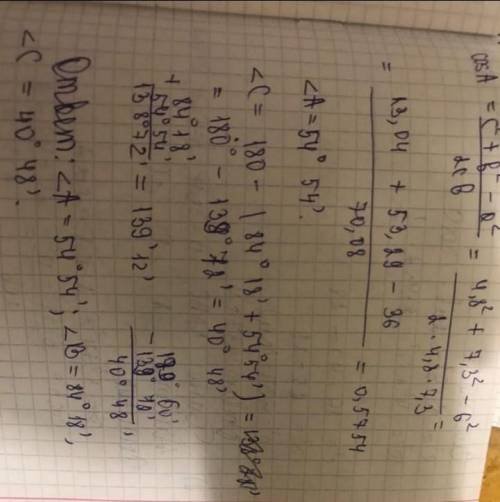 cos A = c² + b² - a² / 2cb = 4,8² + 7,3² - 6² / 2·4,8·7,3 =
= 23,04 + 53,29 - 36 / 70,08 = 0,5754
∠A = 54° 54'.
∠C = 180 - (84° 18' + 54° 54') =
= 180° - 139° 12' = 40° 48'
+ 84° 18'
54° 54'
138° 72' = 139° 12'
- 179° 60'
139° 12'
40° 48'
Ответ: ∠A = 54° 54'; ∠B = 84° 18';
∠C = 40° 48'.